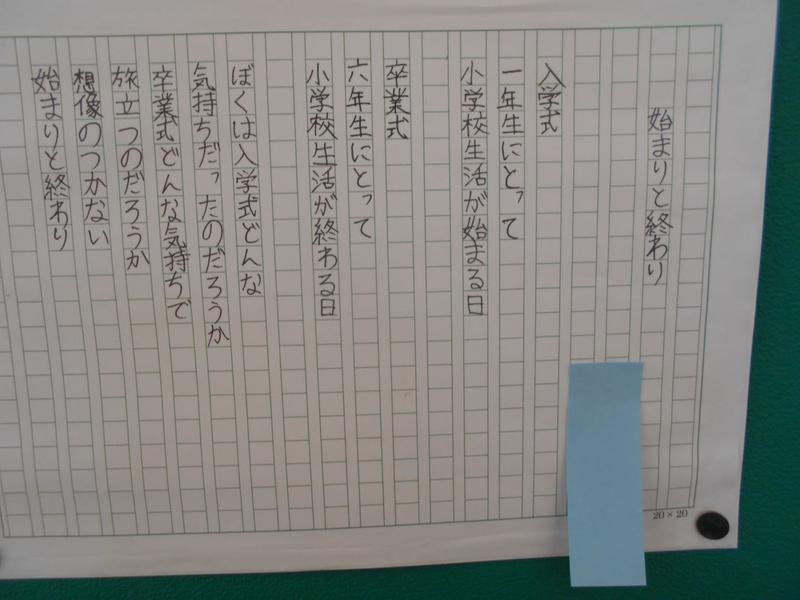 始まりと終わり
入学式
一年生にとって
小学校生活が始まる日
卒業式
六年生にとって
小学校生活が終わる日
ぼくは入学式どんな
気持ちだったのだろうか
卒業式どんな気持ちで
旅立つのだろうか
想像のつかない
始まりと終わり
20×20